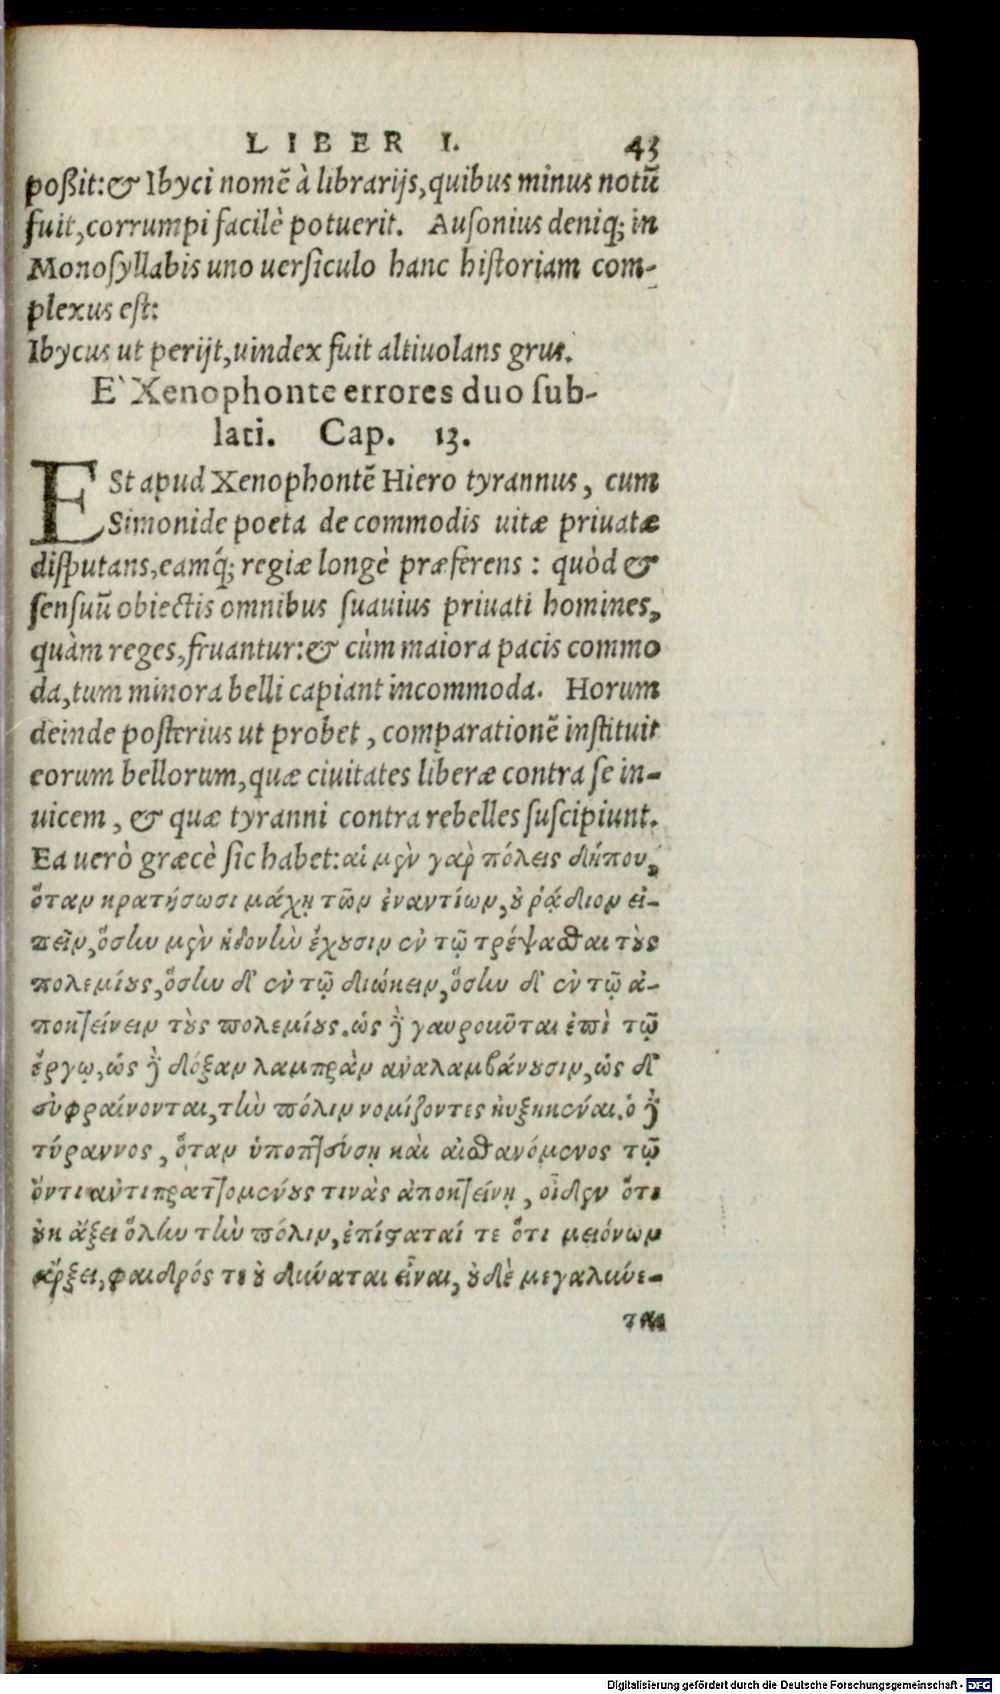 LIBER I. 43
poßit:& Ibyci nomē à librarijs,quibus minus notū
fuit,corrumpi facilè potuerit. Auſonius deniq; in
Monoſyllabis uno uerſiculo hanc hiſtoriam com-
plexus eſt:
Ibycus ut perijt,uindex fuit altiuolans grus.
E` Xenophonte errores duo ſub-
lati. Cap. 13.
ESt apud Xenophontē Hiero tyrannus, cum
Simonide poeta de commodis uitæ priuatæ
diſputans,eamq́; regiæ longè præferens : quòd &
ſenſuū obiectis omnibus ſuauius priuati homines,
quàm reges,fruantur:& cùm maiora pacis commo
da,tum minora belli capiant incommoda. Horum
deinde poſterius ut probet, comparationē inſtituit
eorum bellorum,quæ ciuitates liberæ contra ſe in-
uicem, & quæ tyranni contra rebelles ſuſcipiunt.
Ea uerò græcè ſic habet:αἱ μὲν γαρ πόλεις δήπου,
ὅταν κρατήσωσι μάχῃ τῶν ἐναντίων, ȣ ῥάδιον εἰ-
πεῖν, ὅσην μὲν ἡδονὴν ἔχȣσιν ἐν τῷ τρέψασθαι τȣς
πολεμίȣς, ὅσην δ' ἐν τῷ διώκειν, ὅσην δ' ἐν τῷ ἀ-
ποκτείνειν τȣς πολεμίȣς. ὡς δὲ γαυροῦνται ἐπὶ τῷ
ἔργῳ, ὡς δὲ δόξαν λαμπρὰν ἀναλαμβάνȣσιν, ὡς δ'
εὐφραίνονται, τὴν πόλιν νομίζοντες ηὐξηκέναι. ὁ δὲ
τύραννος, ὅταν ὑποπτεύσῃ καὶ αἰσθανόμενος τῷ
ὄντι ἀντιπραττομένȣς τινὰς ἀποκτείνῃ, οἶδεν ὅτι
ȣκ ἄξει ὅλην τὴν πόλιν, ἐπίσταταί τε ὅτι μειόνων
ἄρξει, φαιδρός τε ȣ δύναται εἶναι, ȣδὲ μεγαλύνε-
ται
Digitalisierung gefördert durch die Deutsche Forschungsgemeinschaft - DFG